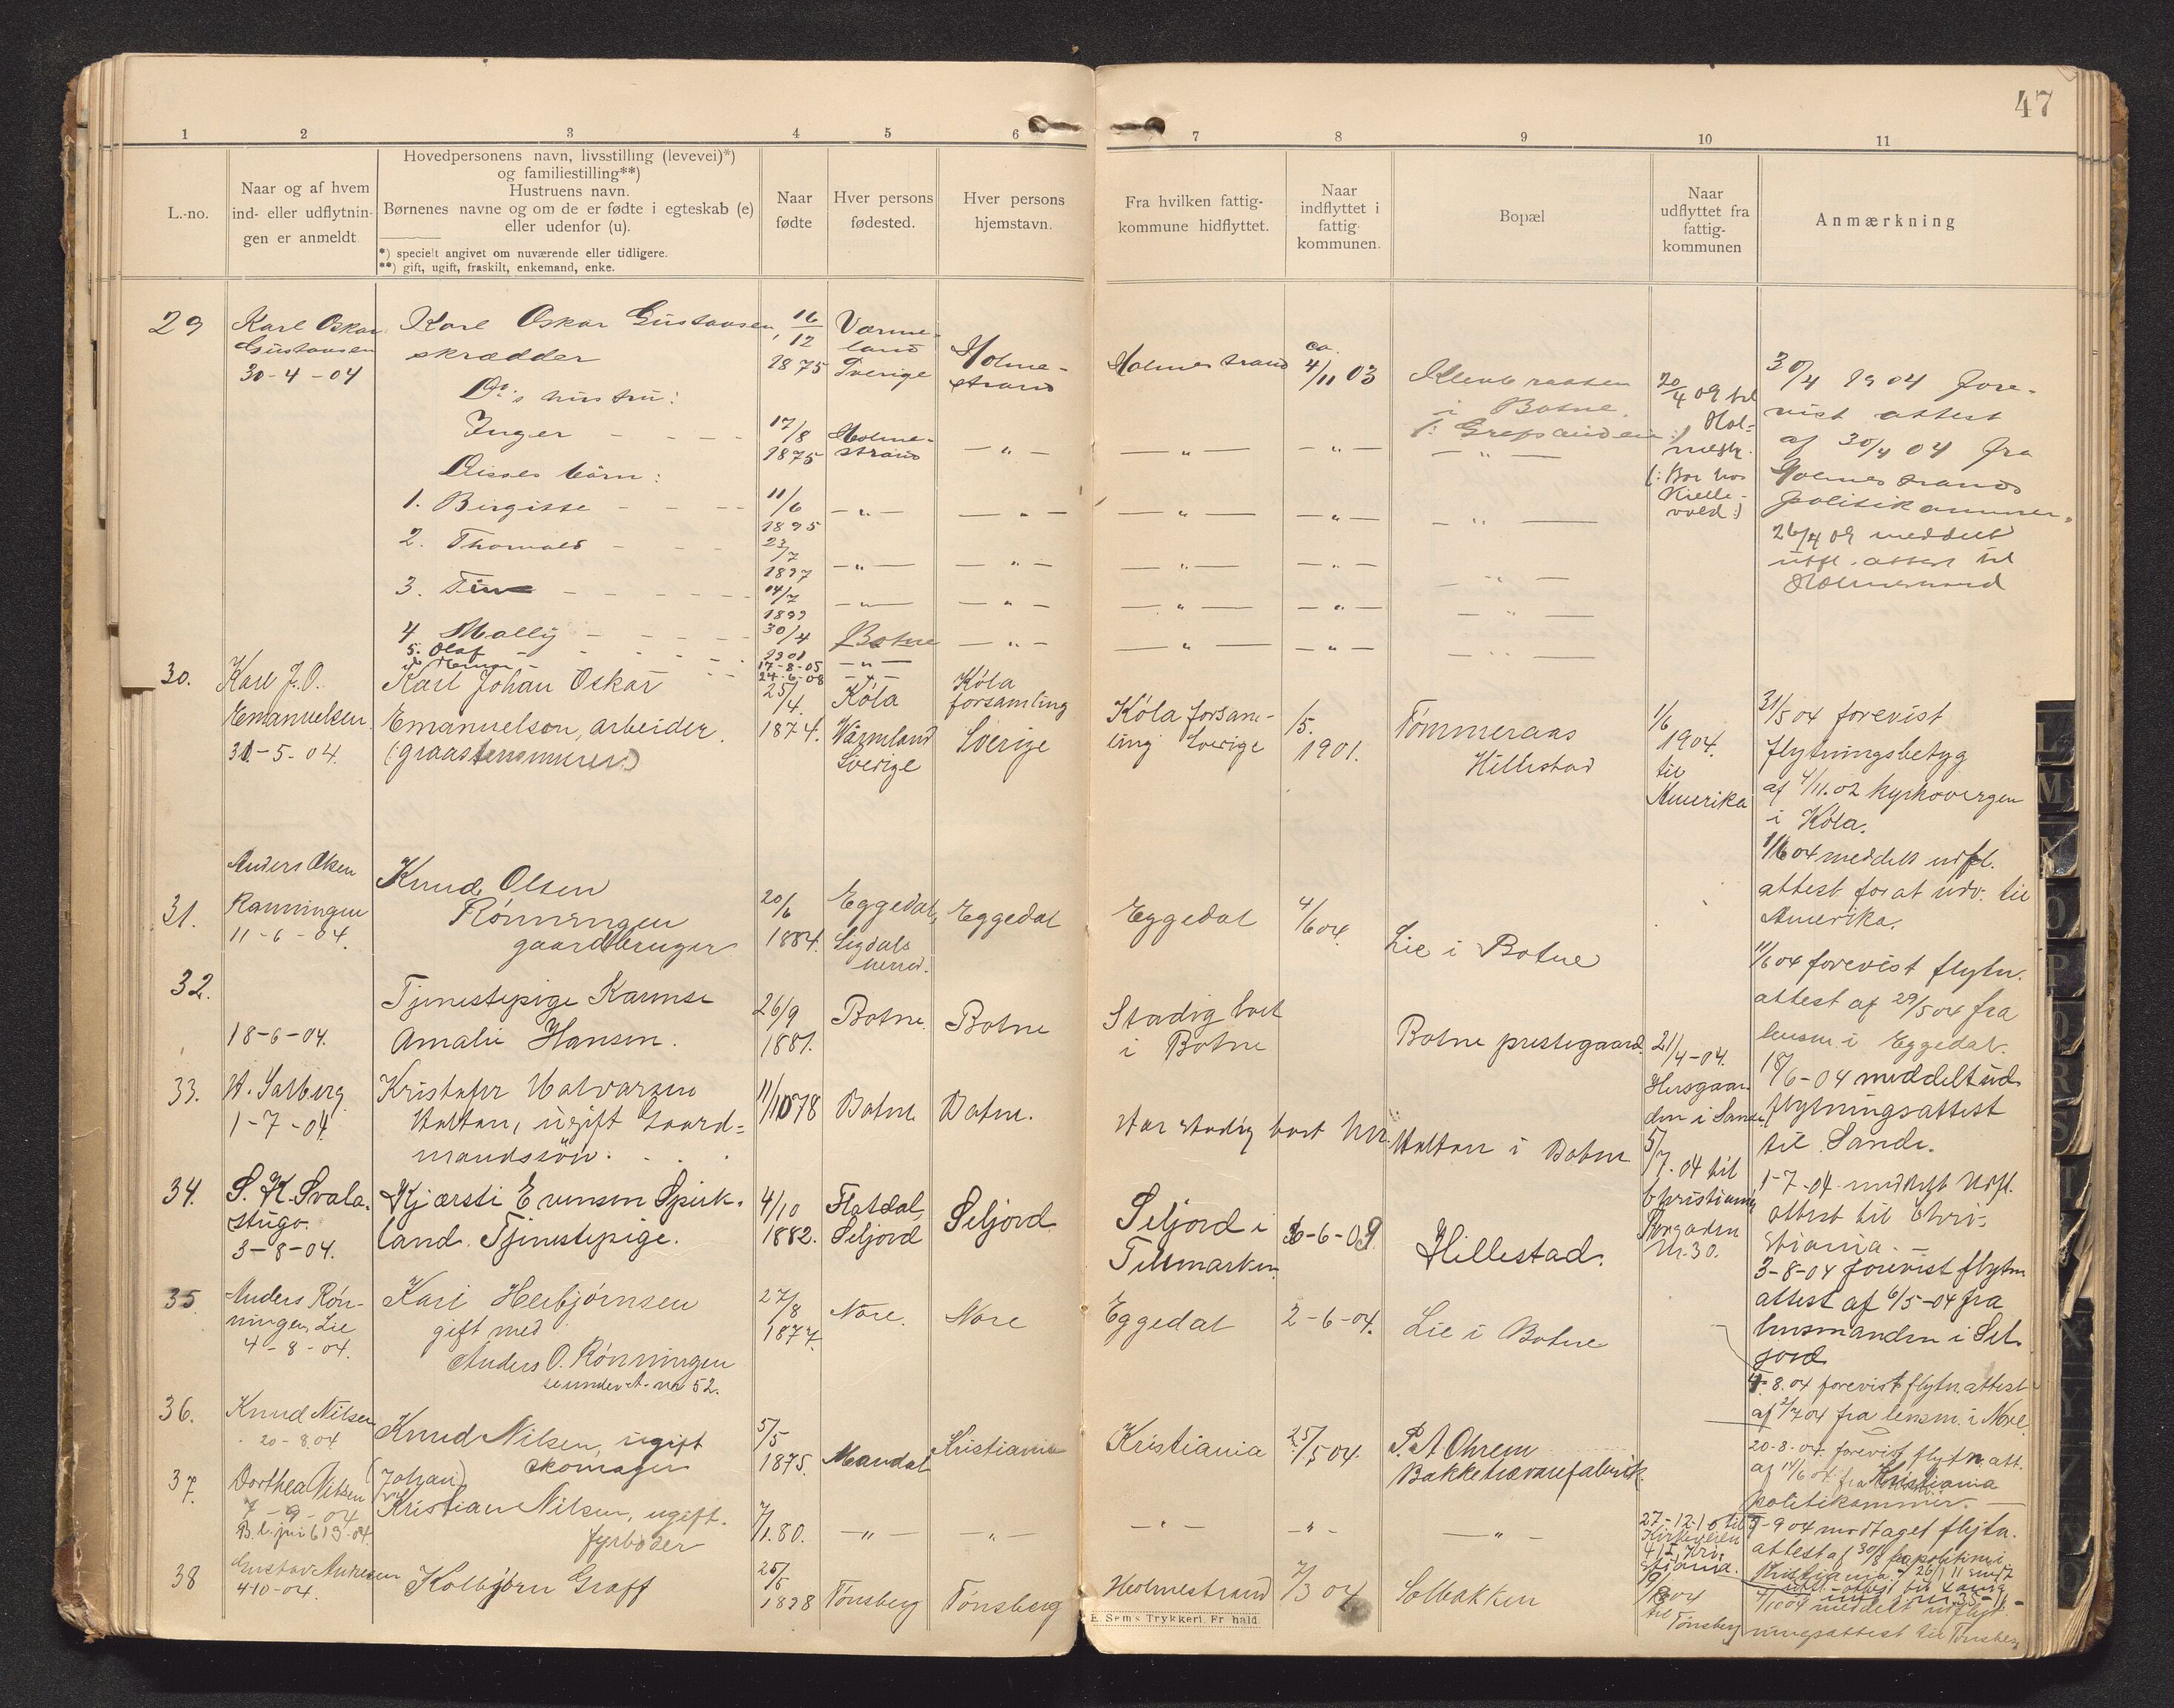 47
1 2 3 4 5 6 7 8 9 10 11
L.-no.
Naar og af hvem
ind- eller udflytnin-
gen er anmeldt.
Hovedpersonens navn, livsstilling (levevei)*)
og familiestilling**)
Hustruens navn.
Børnenes navne og om de er fødte i egteskab (e)
eller udenfor (u).
*) specielt angivet om nuværende eller tidligere.
**) gift, ugift, fraskilt, enkemand, enke.
Naar
fødte
Hver persons
fødested.
Hver persons
hjemstavn.
Fra hvilken fattig-
kommune hidflyttet.
Naar
indflyttet i
fattig-
kommunen.
Bopæl
Naar
udflyttet fra
fattig-
kommunen
Anmærkning
29
Karl Oskar
Gustavsen
30-4-04
Karl Oskar Gustavsen
skrædder
Do's hustru:
Inger
Disses børn:
1. Birgitte
2. Thorvald
3.
4 Molly
5. Olaf
16/12
1875
17/8
1875
11/6
1895
23/7
1897
/7
1899
30/4
1901
17-8-05
24-6-08
Værme-
land
Sverige
Holme-
strand
Botne
Holme-
strand
Holmestrand
ca.
4/11 03
i Botne.
20/4 09 til
Hol-
mestr.
(: Bor hos
Kielle-
vold:)
30/4 1904 fore-
vist attest
af 30/4 04 fra
Holmestrands
politikammer.
26/4 09 meddelt
utfl. attest til
Holmestrand
30.
Karl J. O.
Emanuelsen
31-5-04.
Karl Johan Oskar
Emanuelson, arbeider.
25/4.
1874.
Köla
Värmland
Sverige
Köla
forsamling
Sverige
Köla forsam-
ling Sverige
/5.
1901.
Tømmeraas
Hillestad
1/6
1904.
til
Amerika
31/5 04 forevist
flytningsbetyg
af 4/11.02
i Köla.
1/6 04 meddelt udfl.
attest for at udv. til
Amerika.
31.
Anders Olsen
Rønningen
11-6-04.
Knud Olsen
Rønningen
gaardbruger
20/6
1884.
Eggedal,
Sigdals
herred.
Eggedal
Eggedal
4/6 04.
Lie i Botne
11/6 04 forevist flytn.
attest af 29/5 04 fra
lensm. i Eggedal.
32.
18-6-04.
Tjenestepige
Amalie Hansen.
26/9
1881.
Botne.
Botne
Stadig boet
i Botne
Botne prestegaard.
21/4-04.
den i Sande.
18/6-04 meddelt ud-
flytningsattest
til Sande.
33.
1-7-04.
Kristofer Halvorsen
Holtan, ugift Gaard-
mandssøn.
11/10 78
Botne
Botne.
Har stadig boet her.
Holtan i Botne
5/7-04 til
Christiania
Nr. 30.
1-7-04 meddelt udfl.
attest til Chri-
stiania.
34.
S. K. Svala-
stugo.
3-8-04.
Kjærsti Evensen
land. Tjenestepige.
4/10
1882.
Flatdal,
Seljord
Seljord
Seljord i
Telemarken.
Hillestad.
3-8-04 forevist flytn.
attest af 6/5-04 fra
lensmanden i Sel-
jord
35.
Anders Røn-
ningen, Lie
4-8-04.
Kari Herbjørnsen
gift med
Anders O. Rønningen
se under A. nr 52.
27/8
1877.
Nore.
Nore
Eggedal
2-6-04.
Lie i Botne
4-8.04 forevist flytn. attest
af 2/7 04 fra lensm. i Nore
36.
Knud Nilsen
20-8.04
Knud Nilsen, ugift
skomager
5/5
1875.
Mandal
Kristiania
Kristiania
25/5 04.
P. A. Ohrem
Bakketrævarefabrik
20-8-04 forevist flytn. att.
af 14/6 04 fra Kristiania
politikammer.
37.
Dorthea Nilsen
7-9-04
(Johan)
Kristian Nilsen, ugift.
fyrbøder
7/1.80.
27-12-10 til
Kirkeveien
9-04 modtaget flytn.
attest af 30/8 fra politimi
Kristiania.
38
Gustav Andresen
4-10-04.
Kolbjørn Graff
Tønsberg
Tønsberg
Holmestrand
7/3 04
Solbakken
til
Tønsberg
4/10 04 meddelt udflyt-
ningsattest til Tønsberg
E. Sem's Trykkeri, Fr.hald
L
M
O
P
Q
R
S
X
Y
Z